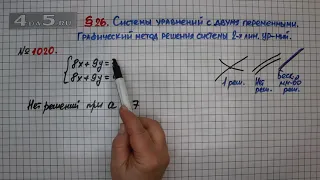 4App5.RU
§26. Системы уравнений с двумя переменными.
Графический метод решения системы 2-х лин. ур-ний.
№ 1020.
8x + 9y =
8x + 9y =
1 реш.
Нет реш.
беск. мн-во реш.
Нет решений при a 7